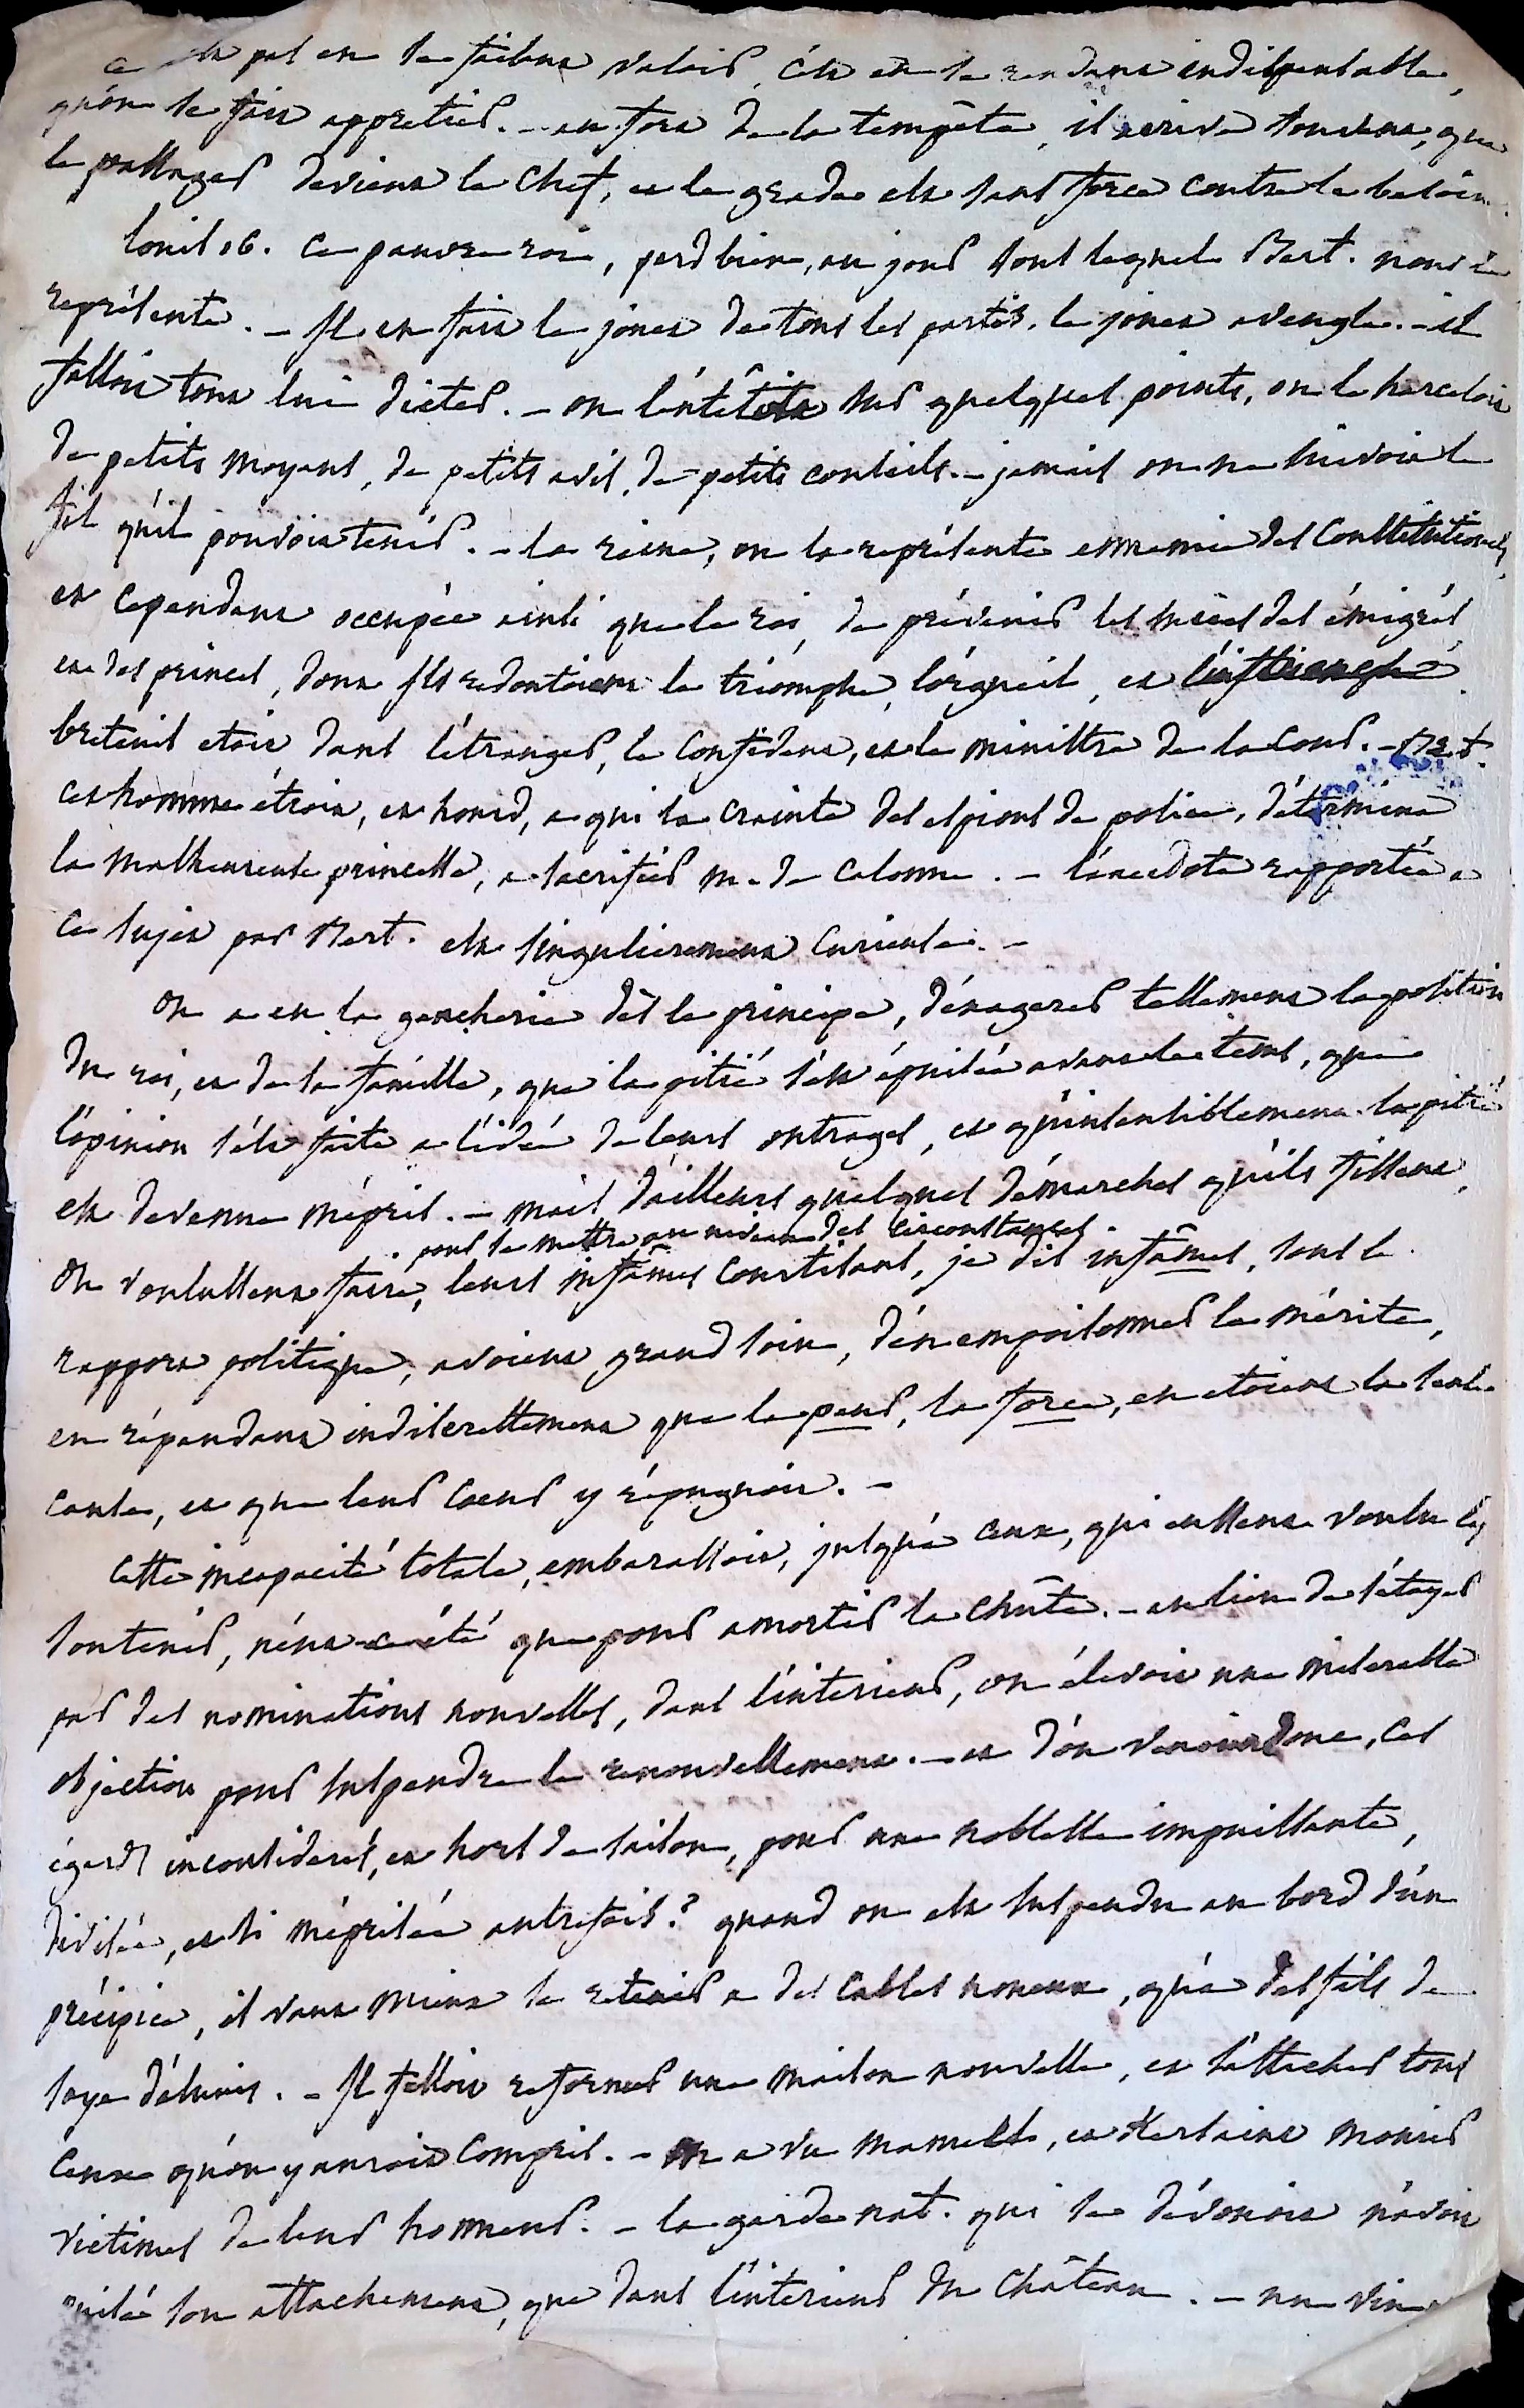 ce n'est pas en se faisant valoir, c'est en se rendant indispensable,
qu'on se fait apprecier. - au fort de la tempête, il arrive souvent, que
le passager devient le chef, et le grade est sans force contre le besoin.
Louis 16. ce pauvre roi, perd bien, au jour sous lequel Bert. nous le
représente. - Il est fait le jouet de tous les partis. le jouet aveugle. - il
falloit tout lui dicter. - on l'entêtoit sur quelques points, on le harceloit
de petits moyens, de petits avis, de petits conseils. - jamais on ne suivoit le
fil qu'il pouvoit tenir. - la reine, on la représente ennemie des Constitutionels,
et cependant occupée ainsi que le roi, de prévenir les succès des émigrés
et des princes, dont ils redoutoient le triomphe, l'orgueil, et
breteuil etoit dans l'étranger, le confident, et le ministre de la cour. - Bert.
cet homme étroit, et lourd, a qui la crainte des espions de police, détermina
la malheureuse princesse, a sacrifier m. de Calonne. - l'anecdote rapportée a
ce sujet par Bert. est singulierement curieuse. -
On a eu la gaucherie dès le principe, d'exagerer tellement la position
du roi, et de sa famille, que la pitié s'est épuisée avant le tems, que
l'opinion s'est faite a l'idée de leurs outrages, et qu'insensiblement la pitié
est devenue mépris. - mais d'ailleurs quelques démarches qu'ils fissent,
pour se mettre au niveau des circonstances.
ou voulussent faire, leurs infâmes conseillers, je dis infâmes, sous le
rapport politique, avoient grand soin, d'en empoisonner le mérite,
en répandant indiscrettement que la peur, la force, en etoient la seule
cause, et que leur coeur y répugnoit. -
Cette incapacité totale, embarassoit, jusqu'a ceux, qui eussent voulu les
soutenir, n'eut-ce été que pour amortir la chûte. - au lieu de s'étayer
par des nominations nouvelles, dans l'interieur, on élevoit une miserable
objection pour suspendre le renouvellement. - et d'ou venoient donc, ces
égards inconsiderés, et hors de saison, pour une noblesse impuissante,
divisée, et si méprisée autrefois? quand on est suspendu au bord d'un
précipice, il vaut mieux se retenir a des cables noueux, qu'a des fils de
soye désunis. - Il falloit reformer une maison nouvelle, et s'attacher tous
ceux qu'on y auroit compris. - on a vu et mourir
victimes de leur honneur. - la garde nat. qui se dévouoit n'avoit
puisé son attachement, que dans l'interieur du château. - une